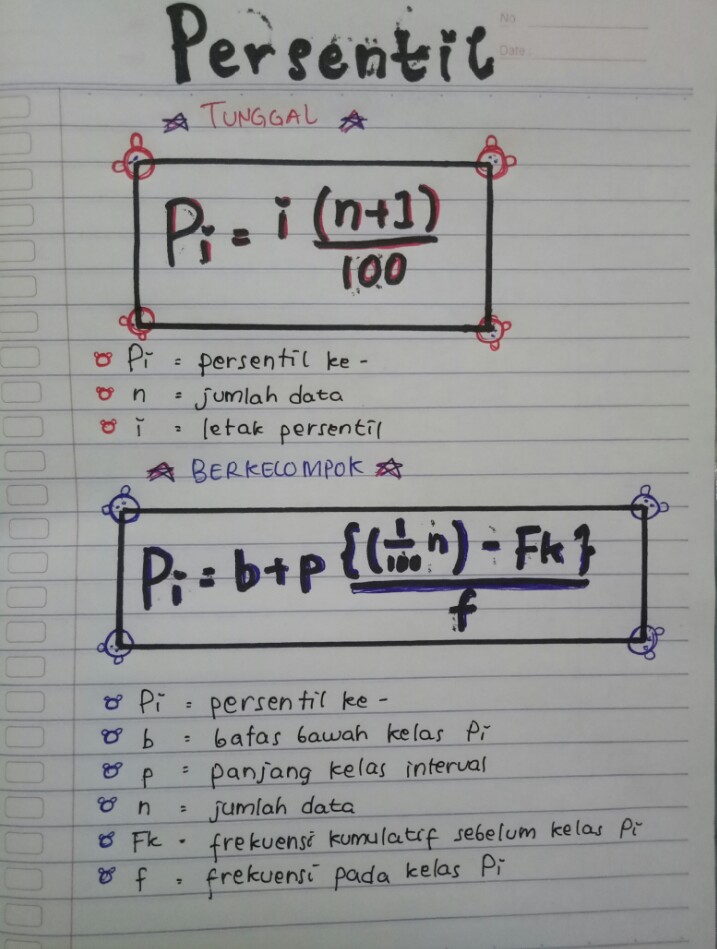 No
Date
Persentil
TUNGGAL
Pi = i (n+1)/100
Pi = persentil ke -
n = jumlah data
i = letak persentil
BERKELOMPOK
Pi = b + p {(1/100 n) - Fk}/f
Pi = persentil ke -
b = batas bawah kelas Pi
p = panjang kelas interval
n = jumlah data
Fk = frekuensi kumulatif sebelum kelas Pi
f = frekuensi pada kelas Pi